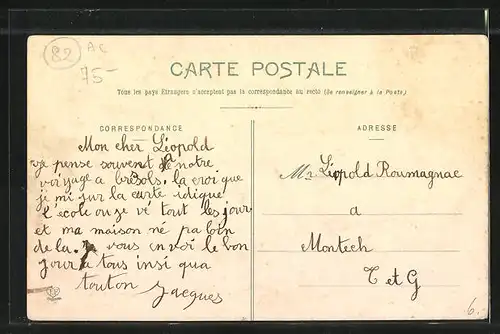 82
AC
75-
CARTE POSTALE
Tous les pays Étrangers n'acceptent pas la correspondance au recto (Se renseigner à la Poste)
CORRESPONDANCE
Mon cher Léopold
je pense souvent a notre
voiyage a bresols. la croi que
je mi sur la carte idique
l'école ou ze vé tout les jour
et ma maison né pa loin
de la. je vous envoi le bon
jour a tous insi qua
touton Jacques
ADRESSE
Mr Léopold Roumagnac
a
Montech
T et G
6.